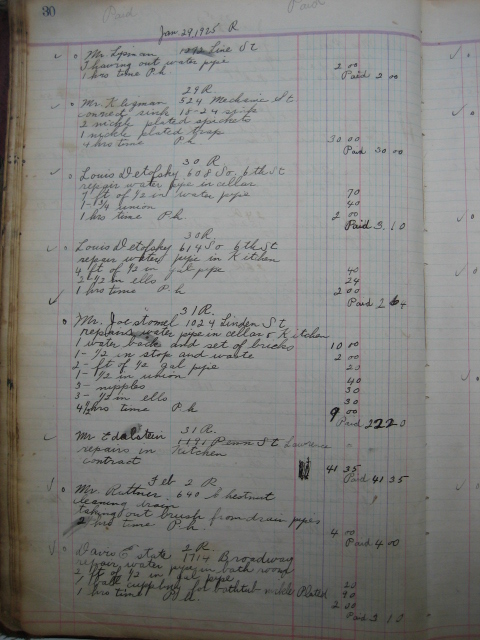 30
Paid
Paid
Jan 29, 1925 R
Mr Lyman Line St
Thawing out water pipe 2 00
1 hrs time P.h. Paid 2 00
29 R
Mr Kligman 524 Mechanic St
connect sink 18-24
2 nickle plated
1 nickle plated trap 30 00
4 hrs time P.h Paid 30 00
30 R
Louis Detofsky 608 So. 6th St
repair water pipe in cellar
7 ft of 1/2 in water pipe 70
1- 3/4 union 40
1 hrs time P.h. 2 00
Paid 3.10
30 R
Louis Detofsky 614 So 6th St
repair water pipe in Kitchen
4 ft of 1/2 in gal pipe 40
2 1/2 in ells 24
1 hrs time P.h 2 00
Paid 2 64
31 R.
Mr. Joe Stomel 1024 Linden St
repairs water pipe in cellar & Kitchen
1 water back and set of bricks 10 00
1- 1/2 in stop and waste 2 00
2- ft of 1/2 gal pipe 20
1- 1/2 in union 40
3- nipples 30
3- 1/2 in ells 30
4 1/2 hrs time P.h 9 00
Paid 22 20
31 R.
Mr Edalstein Penn St
repairs in Kitchen
contract 41 35
Paid 41 35
Feb 2 R
Mr. Rittner, 640 Chestnut
cleaning drain
taking out brush from drain pipes
2 hrs time P.h. 4 00
Paid 4 00
2 R.
Davis Estate 1714 Broadway
repair water pipe in bath room
2 ft of 1/2 in gal pipe 20
1 for bathtub nickle Plated 90
1 hrs time P.h. 2 00
Paid 3 10